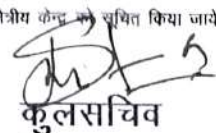 त्रीय केन्द्र को सूचित किया जाये
कुलसचिव